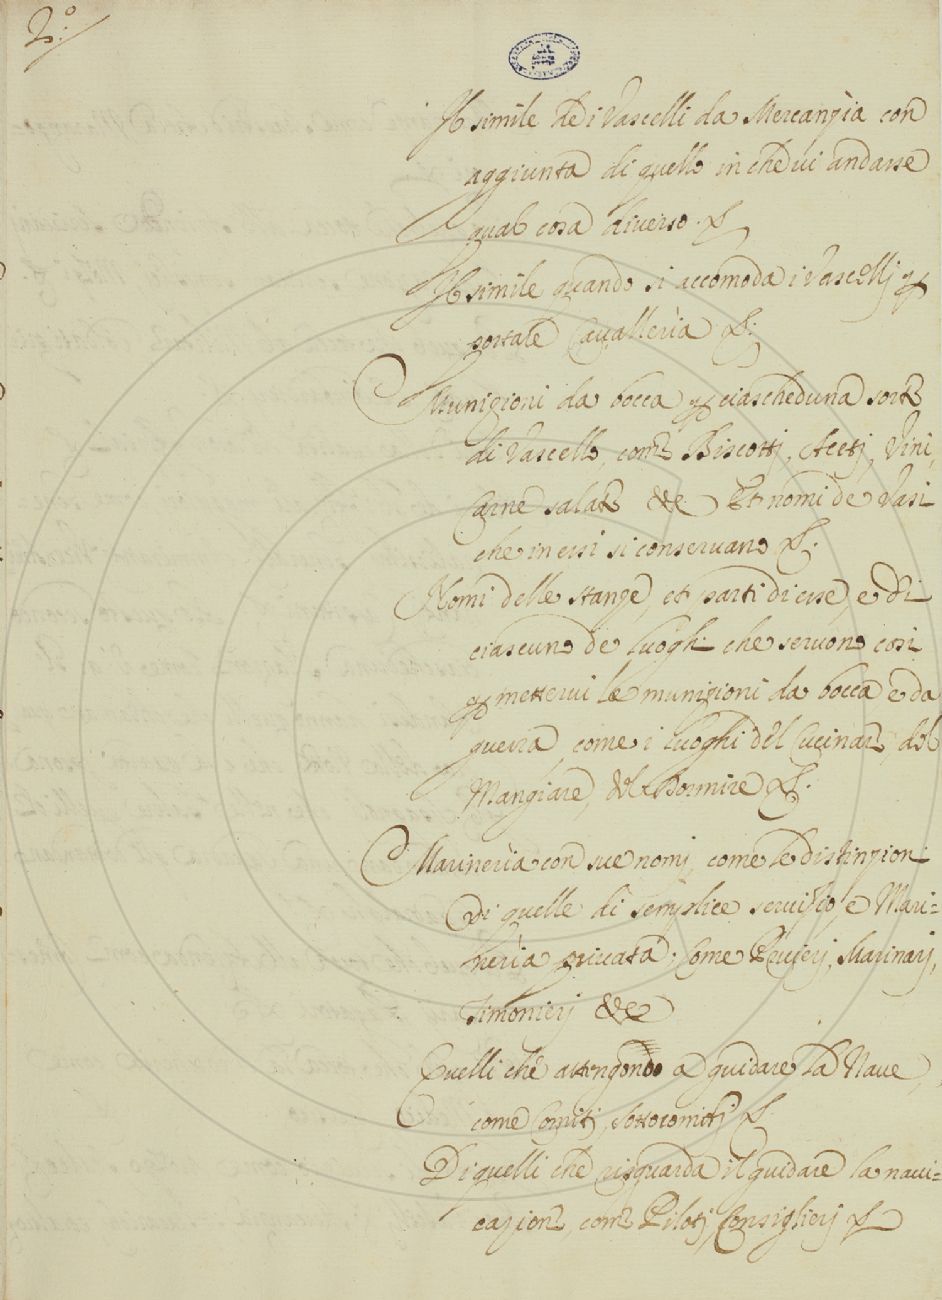 2.º
Il simile de i Vascelli da Mercanzia con
aggiunta di quello in che vi andasse
qual cosa diverso. &.
Il simile quando si accomoda i Vascellj p
portare Cavalleria &.
Munizioni da bocca p ciascheduna sorte
di Vascello, come Biscottj, Acetj, Vini,
Carne salate &c. Et nomi de Vasi
che in essi si conservano &.
Nomi delle stanze, et parti di esse, e di
ciascuno de luoghi che servono così
p mettervi le munizioni da bocca, e da
guerra, come i luoghi del Cucinare, del
Mangiare, del Dormire &.
Marineria con sue nomj, come le distinzioni
Di quelle di semplice servizio e Mari=
neria privata; Come Prujerj, Marinarj,
Timonierj &c
Quelli che attengono a guidare la Nave,
come Comitj, sottocomitj &.
Di quelli che risguarda il guidare la navi=
cazione, come Pilotj, Consiglierj &